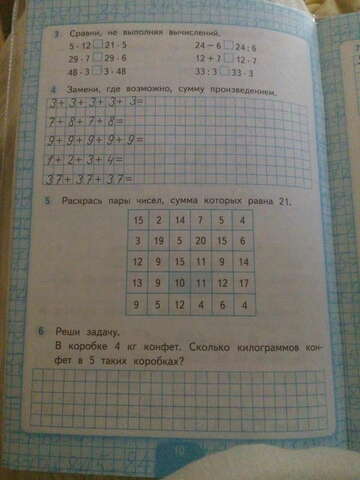 3 Сравни, не выполняя вычислений.
5 · 12 □ 21 · 5 24 − 6 □ 24 : 6
29 · 7 □ 29 · 6 12 + 7 □ 12 · 7
48 · 3 □ 3 · 48 33 : 3 □ 33 · 3
4 Замени, где возможно, сумму произведением.
3+3+3+3+3=
7+8+7+8=
9+9+9+9+9=
1+2+3+4=
37+37+37=
5 Раскрась пары чисел, сумма которых равна 21.
15 2 14 7 5 4
3 19 5 20 15 6
12 9 15 11 9 14
13 9 10 11 12 17
9 5 12 4 6 4
6 Реши задачу.
В коробке 4 кг конфет. Сколько килограммов кон-
фет в 5 таких коробках?
10